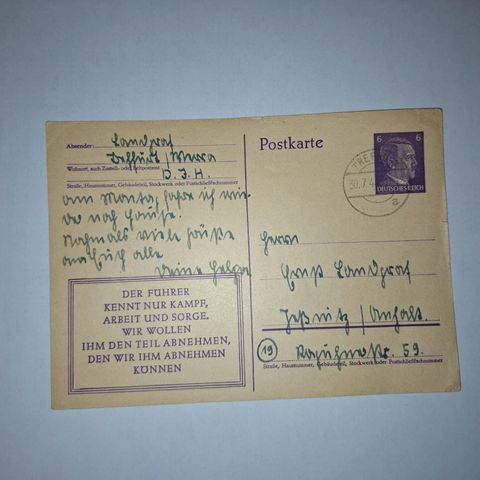 Absender: Landgraf
Treffurt/Werra
Wohnort, auch Zustell- oder Leitpostamt
D.J.H.
Straße, Hausnummer, Gebäudeteil, Stockwerk oder Postschließfachnummer
Am Montag fahre ich wie-
der nach Hause.
Nochmals viele Grüße
an Euch alle
Deine Helga
DER FÜHRER
KENNT NUR KAMPF,
ARBEIT UND SORGE.
WIR WOLLEN
IHM DEN TEIL ABNEHMEN,
DEN WIR IHM ABNEHMEN
KÖNNEN
Postkarte
6 6
DEUTSCHES REICH
TREF
30.7.4
a
Herrn
Ernst Landgraf
Jeßnitz/Anhalt.
19
59.
Straße, Hausnummer, Gebäudeteil, Stockwerk oder Postschließfachnummer